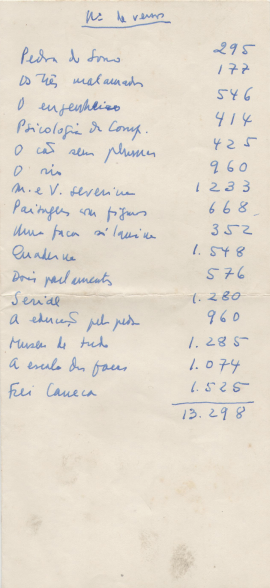 Nº de versos
Pedra do Sono 295
Os três malamados 177
O engenheiro 546
Psicologia da Comp. 414
O cão sem plumas 425
O rio 960
M. e V. Severina 1233
Paisagens com figuras 668
Uma faca só lâmina 352
Quaderna 1.548
Dois parlamentos 576
Serial 1.280
A educação pela pedra 960
Museu de tudo 1.285
A escola das facas 1.074
Frei Caneca 1.525
13.298